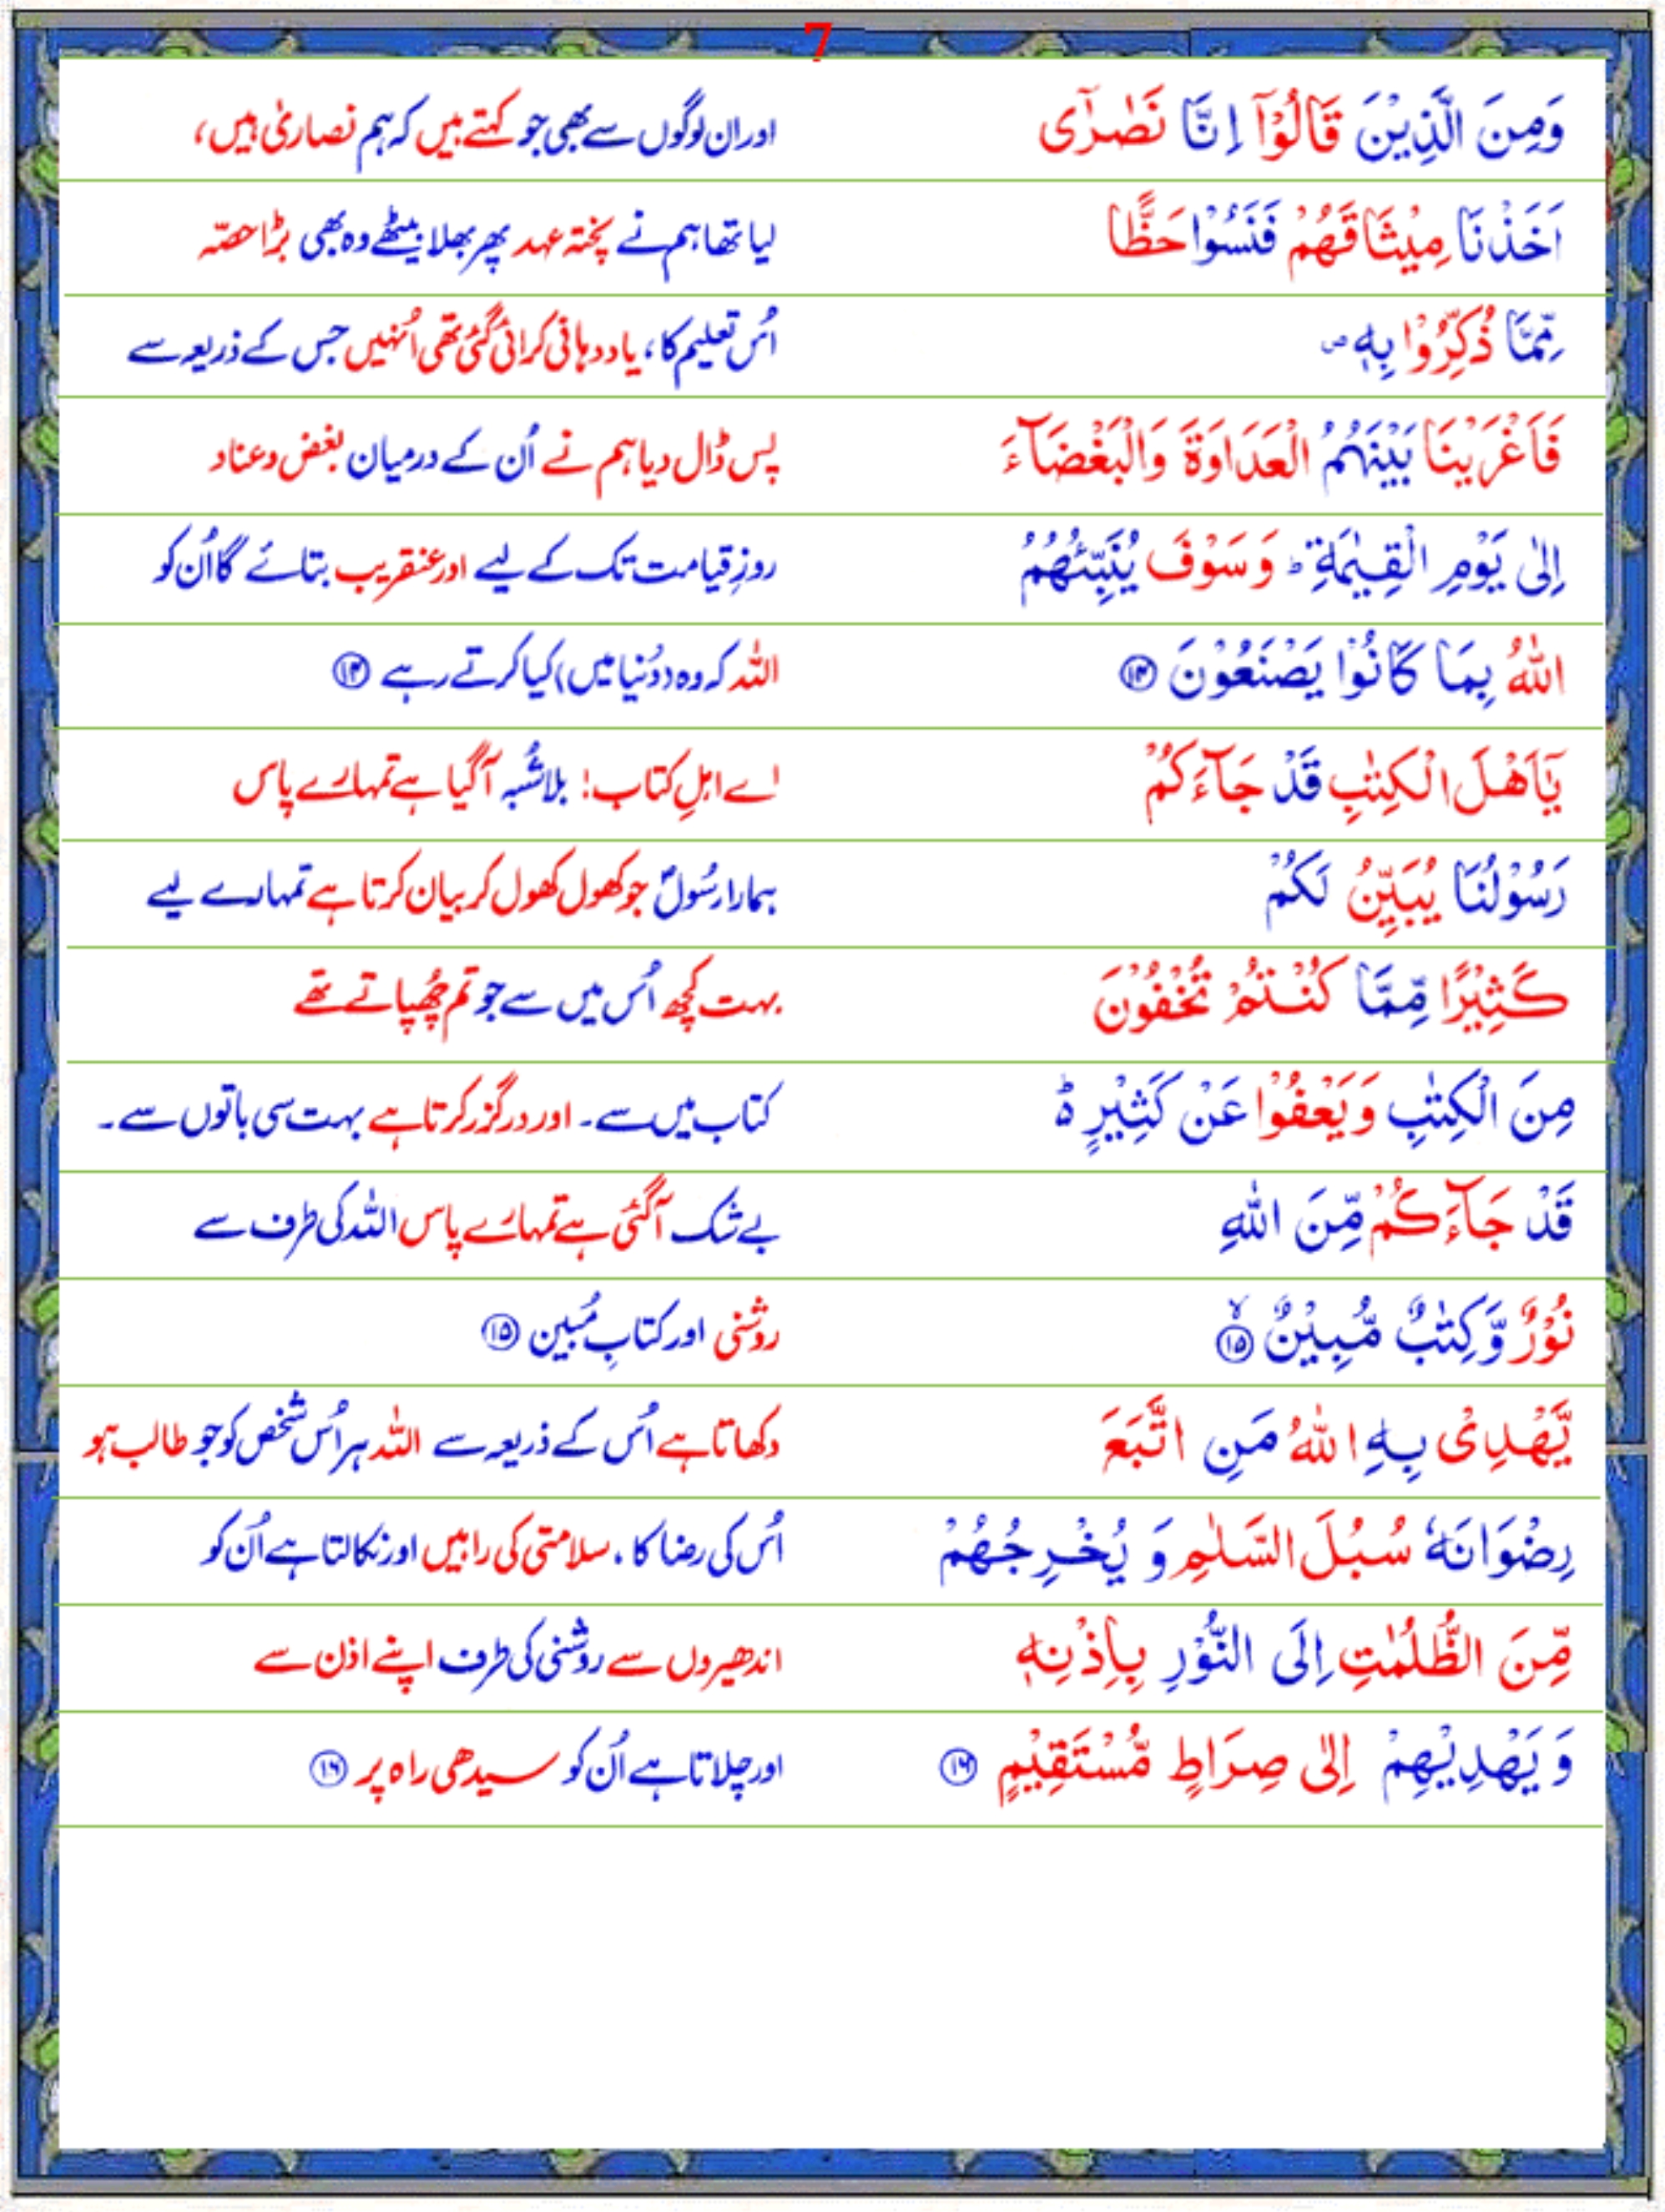 7
وَمِنَ الَّذِيْنَ قَالُوْٓا اِنَّا نَصٰرٰٓى اور ان لوگوں سے بھی جو کہتے ہیں کہ ہم نصاریٰ ہیں،
اَخَذْنَا مِيْثَاقَهُمْ فَنَسُوْا حَظًّا لیا تھا ہم نے پختہ عہد پھر بھلا بیٹھے وہ بھی بڑا حصّہ
مِّمَّا ذُكِّرُوْا بِهٖ ص اُس تعلیم کا، یاد دہانی کرائی گئی تھی اُنہیں جس کے ذریعہ سے
فَاَغْرَيْنَا بَيْنَهُمُ الْعَدَاوَةَ وَالْبَغْضَآءَ پس ڈال دیا ہم نے اُن کے درمیان بغض وعناد
اِلٰى يَوْمِ الْقِيٰمَةِ ؕ وَسَوْفَ يُنَبِّئُهُمُ روزِ قیامت تک کے لیے اور عنقریب بتائے گا اُن کو
اللّٰهُ بِمَا كَانُوْا يَصْنَعُوْنَ ۱۴ اللہ کہ وہ (دُنیا میں) کیا کرتے رہے ۱۴
يٰٓاَهْلَ الْكِتٰبِ قَدْ جَآءَكُمْ اے اہلِ کتاب! بلاشُبہ آگیا ہے تمہارے پاس
رَسُوْلُنَا يُبَيِّنُ لَكُمْ ہمارا رسُولؐ جو کھول کھول کر بیان کرتا ہے تمہارے لیے
كَثِيْرًا مِّمَّا كُنْتُمْ تُخْفُوْنَ بہت کچھ اُس میں سے جو تم چھُپاتے تھے
مِنَ الْكِتٰبِ وَيَعْفُوْا عَنْ كَثِيْرٍ ؕ۬ کتاب میں سے۔ اور درگزر کرتا ہے بہت سی باتوں سے۔
قَدْ جَآءَكُمْ مِّنَ اللّٰهِ بے شک آگئی ہے تمہارے پاس اللہ کی طرف سے
نُوْرٌ وَّكِتٰبٌ مُّبِيْنٌ ۙ ۱۵ روشنی اور کتابِ مُبین ۱۵
يَّهْدِىْ بِهِ اللّٰهُ مَنِ اتَّبَعَ دکھاتا ہے اُس کے ذریعہ سے اللہ ہر اُس شخص کو جو طالب ہو
رِضْوَانَهٗ سُبُلَ السَّلٰمِ وَ يُخْرِجُهُمْ اُس کی رضا کا، سلامتی کی راہیں اور نکالتا ہے اُن کو
مِّنَ الظُّلُمٰتِ اِلَى النُّوْرِ بِاِذْنِهٖ اندھیروں سے روشنی کی طرف اپنے اذن سے
وَ يَهْدِيْهِمْ اِلٰى صِرَاطٍ مُّسْتَقِيْمٍ ۱۶ اور چلاتا ہے اُن کو سیدھی راہ پر ۱۶